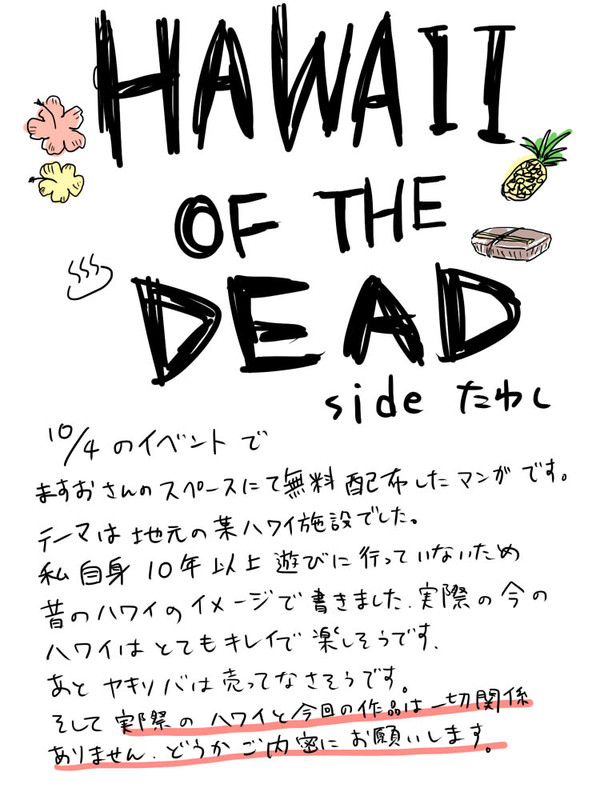 HAWAII
OF THE
DEAD
side たわし
10/4 のイベントで
ますおさんのスペースにて無料配布したマンガです。
テーマは地元の某ハワイ施設でした。
私自身10年以上遊びに行っていないため
昔のハワイのイメージで書きました.実際の今の
ハワイはとてもキレイで楽しそうです.
あとヤキソバは売ってなさそうです。
そして実際のハワイと今回の作品は一切関係
ありません.どうかご内密にお願いします。